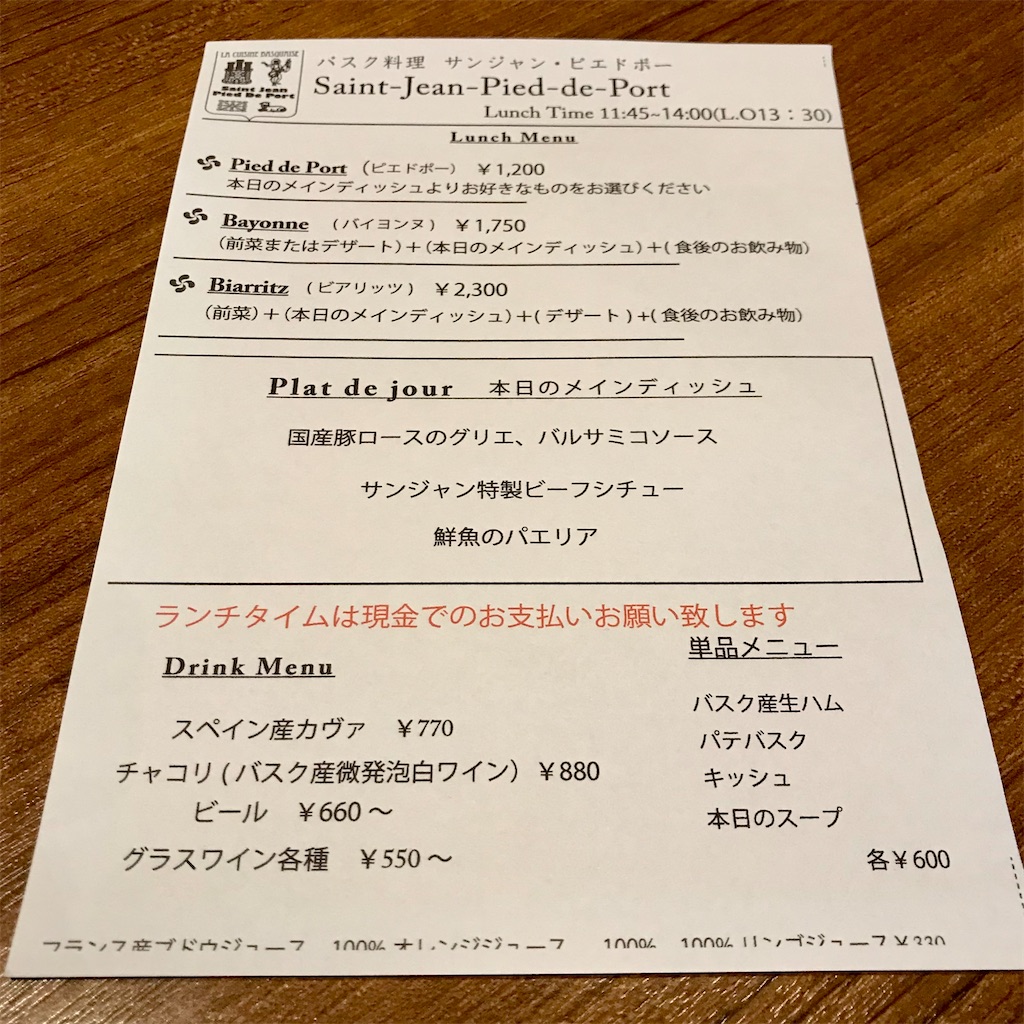 LA CUISINE BASQUAISE
Saint Jean
Pied De Port
バスク料理 サンジャン・ピエドポー
Saint-Jean-Pied-de-Port
Lunch Time 11:45~14:00(L.O13：30)
Lunch Menu
Pied de Port （ピエドポー） ￥1,200
本日のメインディッシュよりお好きなものをお選びください
Bayonne （バイヨンヌ） ￥1,750
（前菜またはデザート）＋（本日のメインディッシュ）＋( 食後のお飲み物）
Biarritz （ビアリッツ） ￥2,300
（前菜）＋（本日のメインディッシュ）＋( デザート ) ＋( 食後のお飲み物）
Plat de jour 本日のメインディッシュ
国産豚ロースのグリエ、バルサミコソース
サンジャン特製ビーフシチュー
鮮魚のパエリア
ランチタイムは現金でのお支払いお願い致します
Drink Menu
スペイン産カヴァ ￥770
チャコリ ( バスク産微発泡白ワイン） ￥880
ビール ￥660 ～
グラスワイン各種 ￥550 ～
単品メニュー
バスク産生ハム
パテバスク
キッシュ
本日のスープ
各￥600
フランス産ブドウジュース 100% オレンジジュース 100% 100% リンゴジュース ￥330